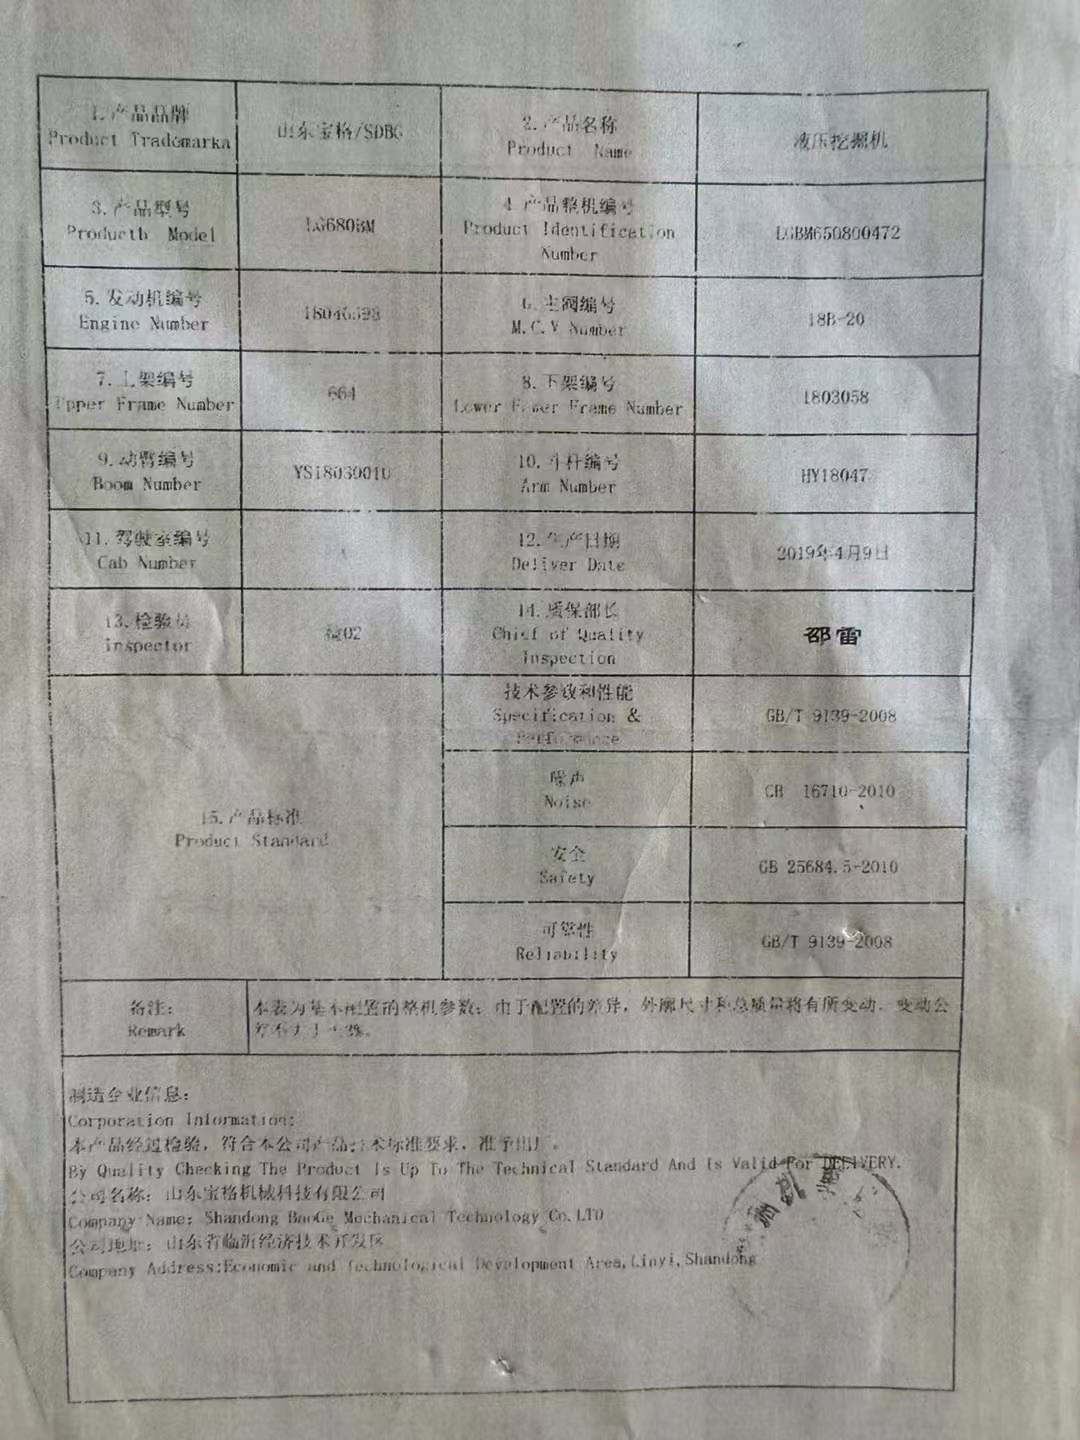 1.产品品牌
Product Trademarka
山东宝格/SDBG
2.产品名称
Product Name
液压挖掘机
3.产品型号
Productb Model
LG680BM
4 产品整机编号
Product Identification
Number
LGBM650800472
5.发动机编号
Engine Number
18046598
6.主阀编号
M.C.V Number
18B-20
7.上架编号
Upper Frame Number
664
8.下架编号
Lower Frame Number
1803058
9.动臂编号
Boom Number
YS18030010
10.斗杆编号
Arm Number
HY18047
11.驾驶室编号
Cab Number
12.生产日期
Deliver Date
2019年4月9日
13.检验员
inspector
检02
14.质保部长
Chief of Quality
Inspection
邵雷
15.产品标准
Product Standard
技术参数和性能
Specification &
Performance
GB/T 9139-2008
噪声
Noise
GB 16710-2010
安全
Safety
GB 25684.5-2010
可靠性
Reliability
GB/T 9139-2008
备注：
Remark
本表为基本配置的整机参数；由于配置的差异，外廓尺寸和总质量将有所变动，变动公
差不大于±3%。
制造企业信息：
Corporation Information:
本产品经过检验，符合本公司产品技术标准要求，准予出厂。
By Quality Checking The Product Is Up To The Technical Standard And Is Valid For DELIVERY.
公司名称：山东宝格机械科技有限公司
Company Name: Shandong BaoGe Mechanical Technology Co.LTD
公司地址：山东省临沂经济技术开发区
Company Address:Economic and Technological Development Area,Linyi,Shandong